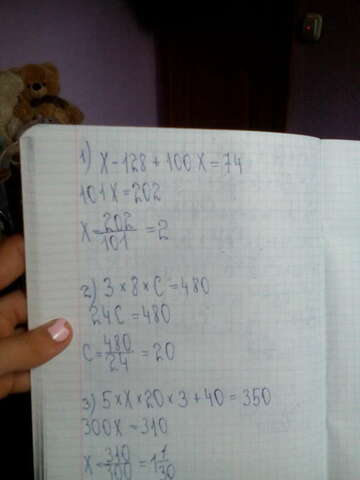 1) x - 128 + 100x = 74
101x = 202
x = 202/101 = 2
2) 3 × 8 × C = 480
24C = 480
C = 480/24 = 20
3) 5 × x × 20 × 3 + 40 = 350
300x = 310
x = 310/300 = 1 1/30